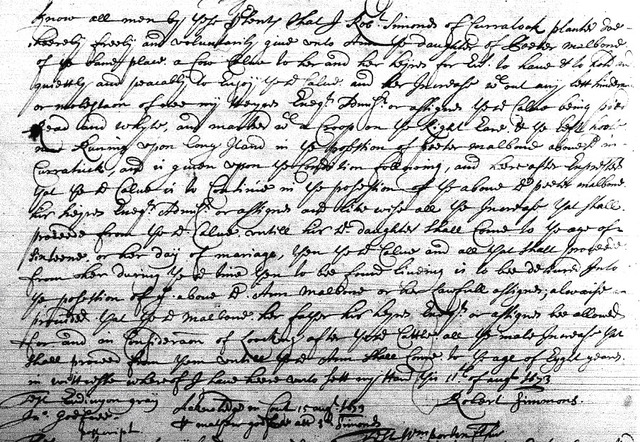 Know all men by these p'sents that I Robt. Simons of Curratook planter doe
heereby freely and voluntarily give unto Ann ye daughter of Peeter Malbone
of ye same place, a Cow Calue to her and her heyres for Ever to have & to hold
quiettly and peacably to Enjoy ye sd Calue and her Increase wt out any lett hinderance
or molestion of mee my Heyres Exegrs Admrs or assignes ye sd Calue being pied
Read and whyte, and marked wt a Croop on ye Right Eare & ye left
and Runing upon long Iland in ye possestion of Peeter malbone above sd in
Curratuck, and is given upon ye Condition following, and heere after Expressed
yt ye sd Calue is to Continue in ye possession of ye above sd peeter malbone
his heyres Exegrs Admrs or assignes and likewise all ye Increase yt shall
proceed from ye sd Calue untill her sd daughter shall Come to ye age of
sixteene, or her day of mariage, then ye sd Calue and all yt shall proceed
from her during ye sd time then to be found liueing is to be deliuerd Into
ye possestion of ye above sd Ann malbone or her lawfull assignes; alwaise
provided yt ye sd malbone her father his heyres Exegrs or assignes bee allowed
for and in Consideracon of Looking after ye sd Cattle all ye male Increase yt
shall proceed from them untill ye sd Ann shall Come to ye age of Eight years
in wittnesse whereof I have heere unto sett my Hand this 11th of augst 1673
Test gray Acknowledged in Court 15 augt 1673 Robert Simmons
Jno. Godfree malbon godfree Simonds
Test Wm